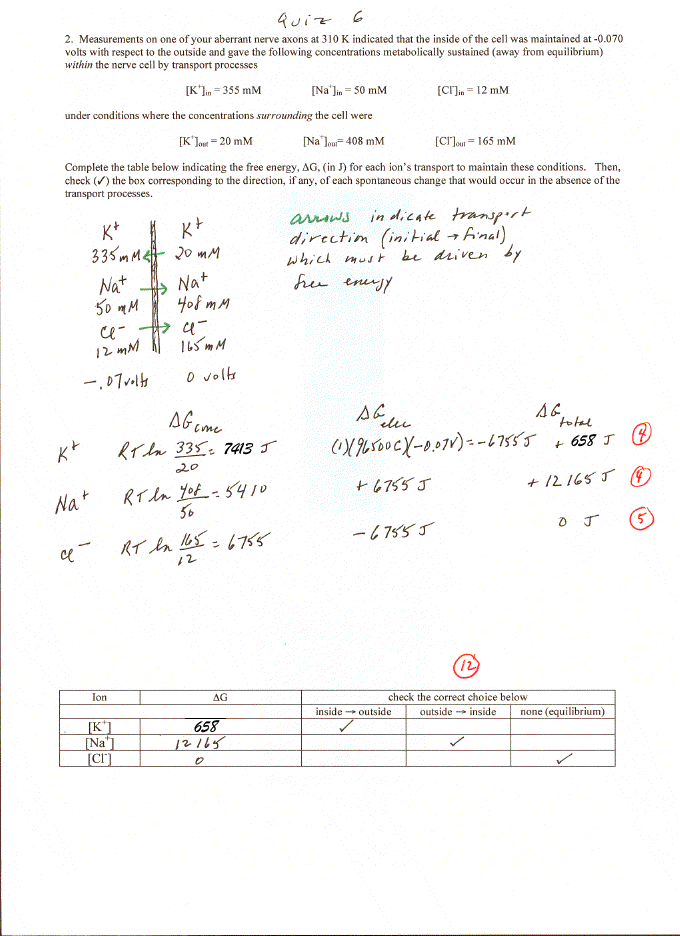 Quiz 6
2. Measurements on one of your aberrant nerve axons at 310 K indicated that the inside of the cell was maintained at -0.070
volts with respect to the outside and gave the following concentrations metabolically sustained (away from equilibrium)
within the nerve cell by transport processes
[K⁺]in = 355 mM [Na⁺]in = 50 mM [Cl⁻]in = 12 mM
under conditions where the concentrations surrounding the cell were
[K⁺]out = 20 mM [Na⁺]out = 408 mM [Cl⁻]out = 165 mM
Complete the table below indicating the free energy, ΔG, (in J) for each ion's transport to maintain these conditions. Then,
check (✓) the box corresponding to the direction, if any, of each spontaneous change that would occur in the absence of the
transport processes.
K⁺ K⁺
335 mM ← 20 mM
Na⁺ → Na⁺
50 mM 408 mM
Cl⁻ → Cl⁻
12 mM 165 mM
-.07 volts 0 volts
arrows indicate transport
direction (initial → final)
which must be driven by
free energy
ΔG conc ΔG elec ΔG total
K⁺ RT ln 335/20 = 7413 J (1)(96500C)(-0.07V) = -6755 J + 658 J 4
Na⁺ RT ln 408/50 = 5410 + 6755 J + 12165 J 4
Cl⁻ RT ln 165/12 = 6755 - 6755 J 0 J 5
12
Ion ΔG check the correct choice below
inside → outside outside → inside none (equilibrium)
[K⁺] 658 ✓
[Na⁺] 12165 ✓
[Cl⁻] 0 ✓